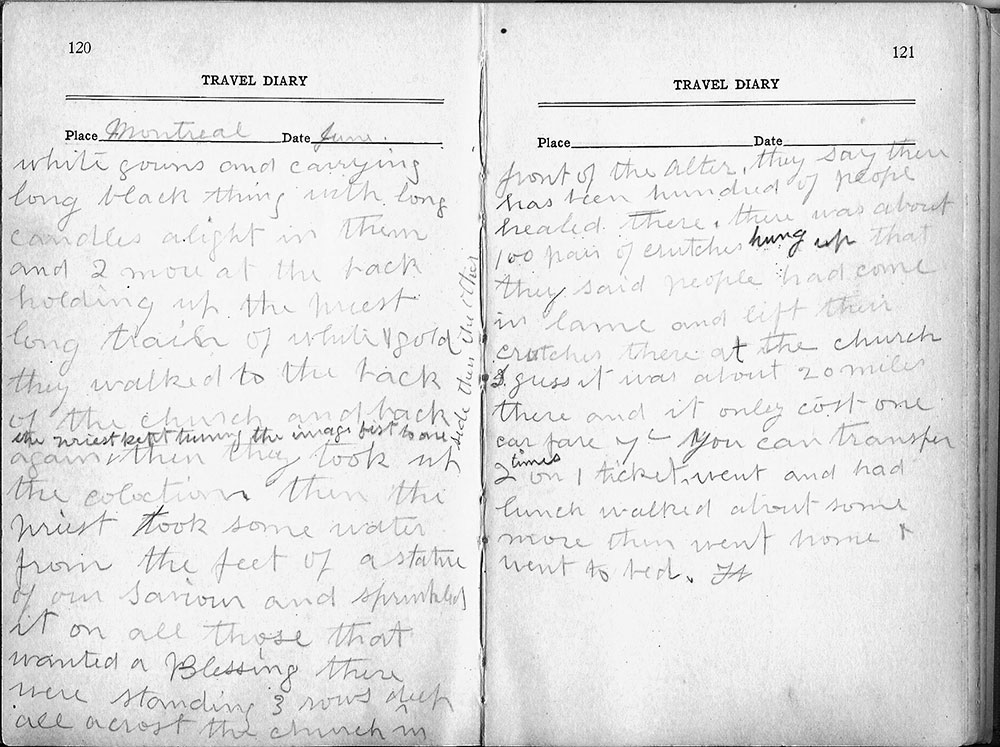 120
TRAVEL DIARY
Place Montreal Date June.
white gouns and carrying
long black thing with long
candles alight in them
and 2 more at the back
holding up the priest
long train of white & gold
they walked to the back
of the church and back
the priest kept turning the image first to one
side then the other
again, then they took up
the colection then the
priest took some water
from the feet of a statue
of our Saviour and sprinkled
it on all those that
wanted a Blessing there
were standing 3 rows deep
all acrost the church in
121
TRAVEL DIARY
Place Date
front of the alter, they say there
has been hundred of people
healed there, there was about
100 pair of crutches hung up that
they said people had come
in lame and lift their
crutches there at the church
I guess it was about 20 miles
there and it only cost one
car fare 7¢ You can transfer
2 times on 1 ticket, went and had
lunch walked about some
more then went home &
went to bed.